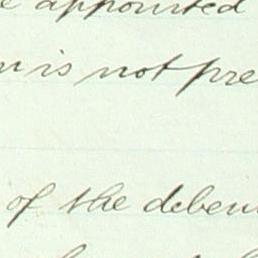 appointed
is not pre
of the deben